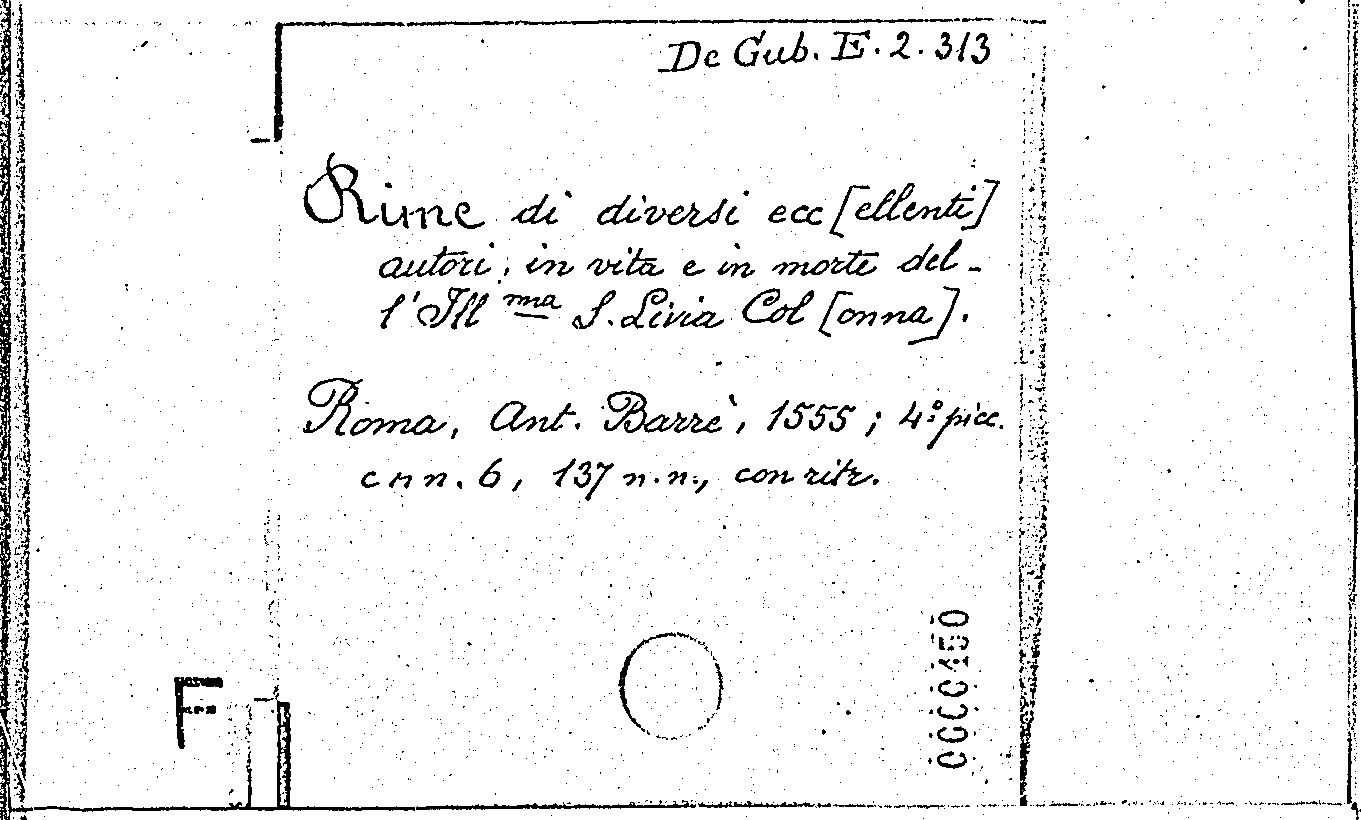 De Gub. E. 2. 313
Rime di diversi ecc[ellenti]
autori, in vita e in morte del-
l'Ill ma S. Livia Col[onna].
Roma, Ant. Barrè, 1555; 4° picc.
c n n. 6, 137 n. n., con ritr.
0000450